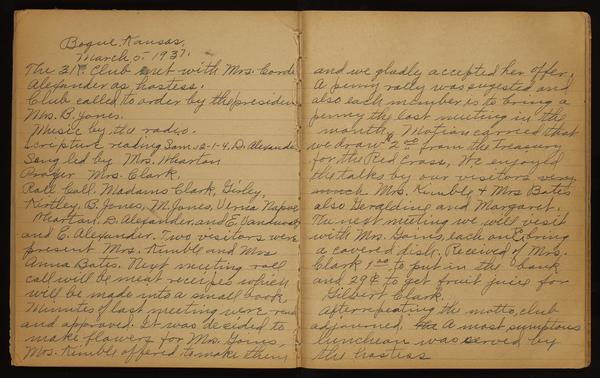 Bogue, Kansas.
March 5, 1937.
The 31K. Club met with Mrs. Corda
Alexander as hostess.
Club called to order by the president
Mrs. B. Jones.
Music by the radio.
Scripture reading Sam 12-1-4. D. Alexander
Song led by Mrs. Wharton
Prayer Mrs. Clark.
Roll Call. Madams Clark, Girley,
Kirtley, B. Jones, M. Jones, Verna Napue
Whartan, D. Alexander, and E. Vanduvall
and C. Alexander. Two visitors were
present Mrs. Kimble and Mrs
Anna Bates. Next meeting roll
call will be meat receipes which
will be made into a small book.
Minutes of last meeting were read
and approved. It was decided to
make flowers for Mrs. Goins,
Mrs. Kimble offered to make them
and we gladly accepted her offer.
A penny rally was sugested and
also each member is to bring a
penny the last meeting in the
month. Motion carried that
we draw $2.00 from the treasury
for the Red Cross, We enjoyed
the talks by our visitors very
much. Mrs. Kimble & Mrs Bates
also Geraldine and Margaret.
The next meeting we will visit
with Mrs. Goins, each one bring
a covered dish. Received of Mrs.
Clark 1.00 to put in the bank
and 29¢ to get fruit juice for
Gilbert Clark.
After repeating the motto, club
adjourned. A most sumptous
luncheon was served by
the hostess